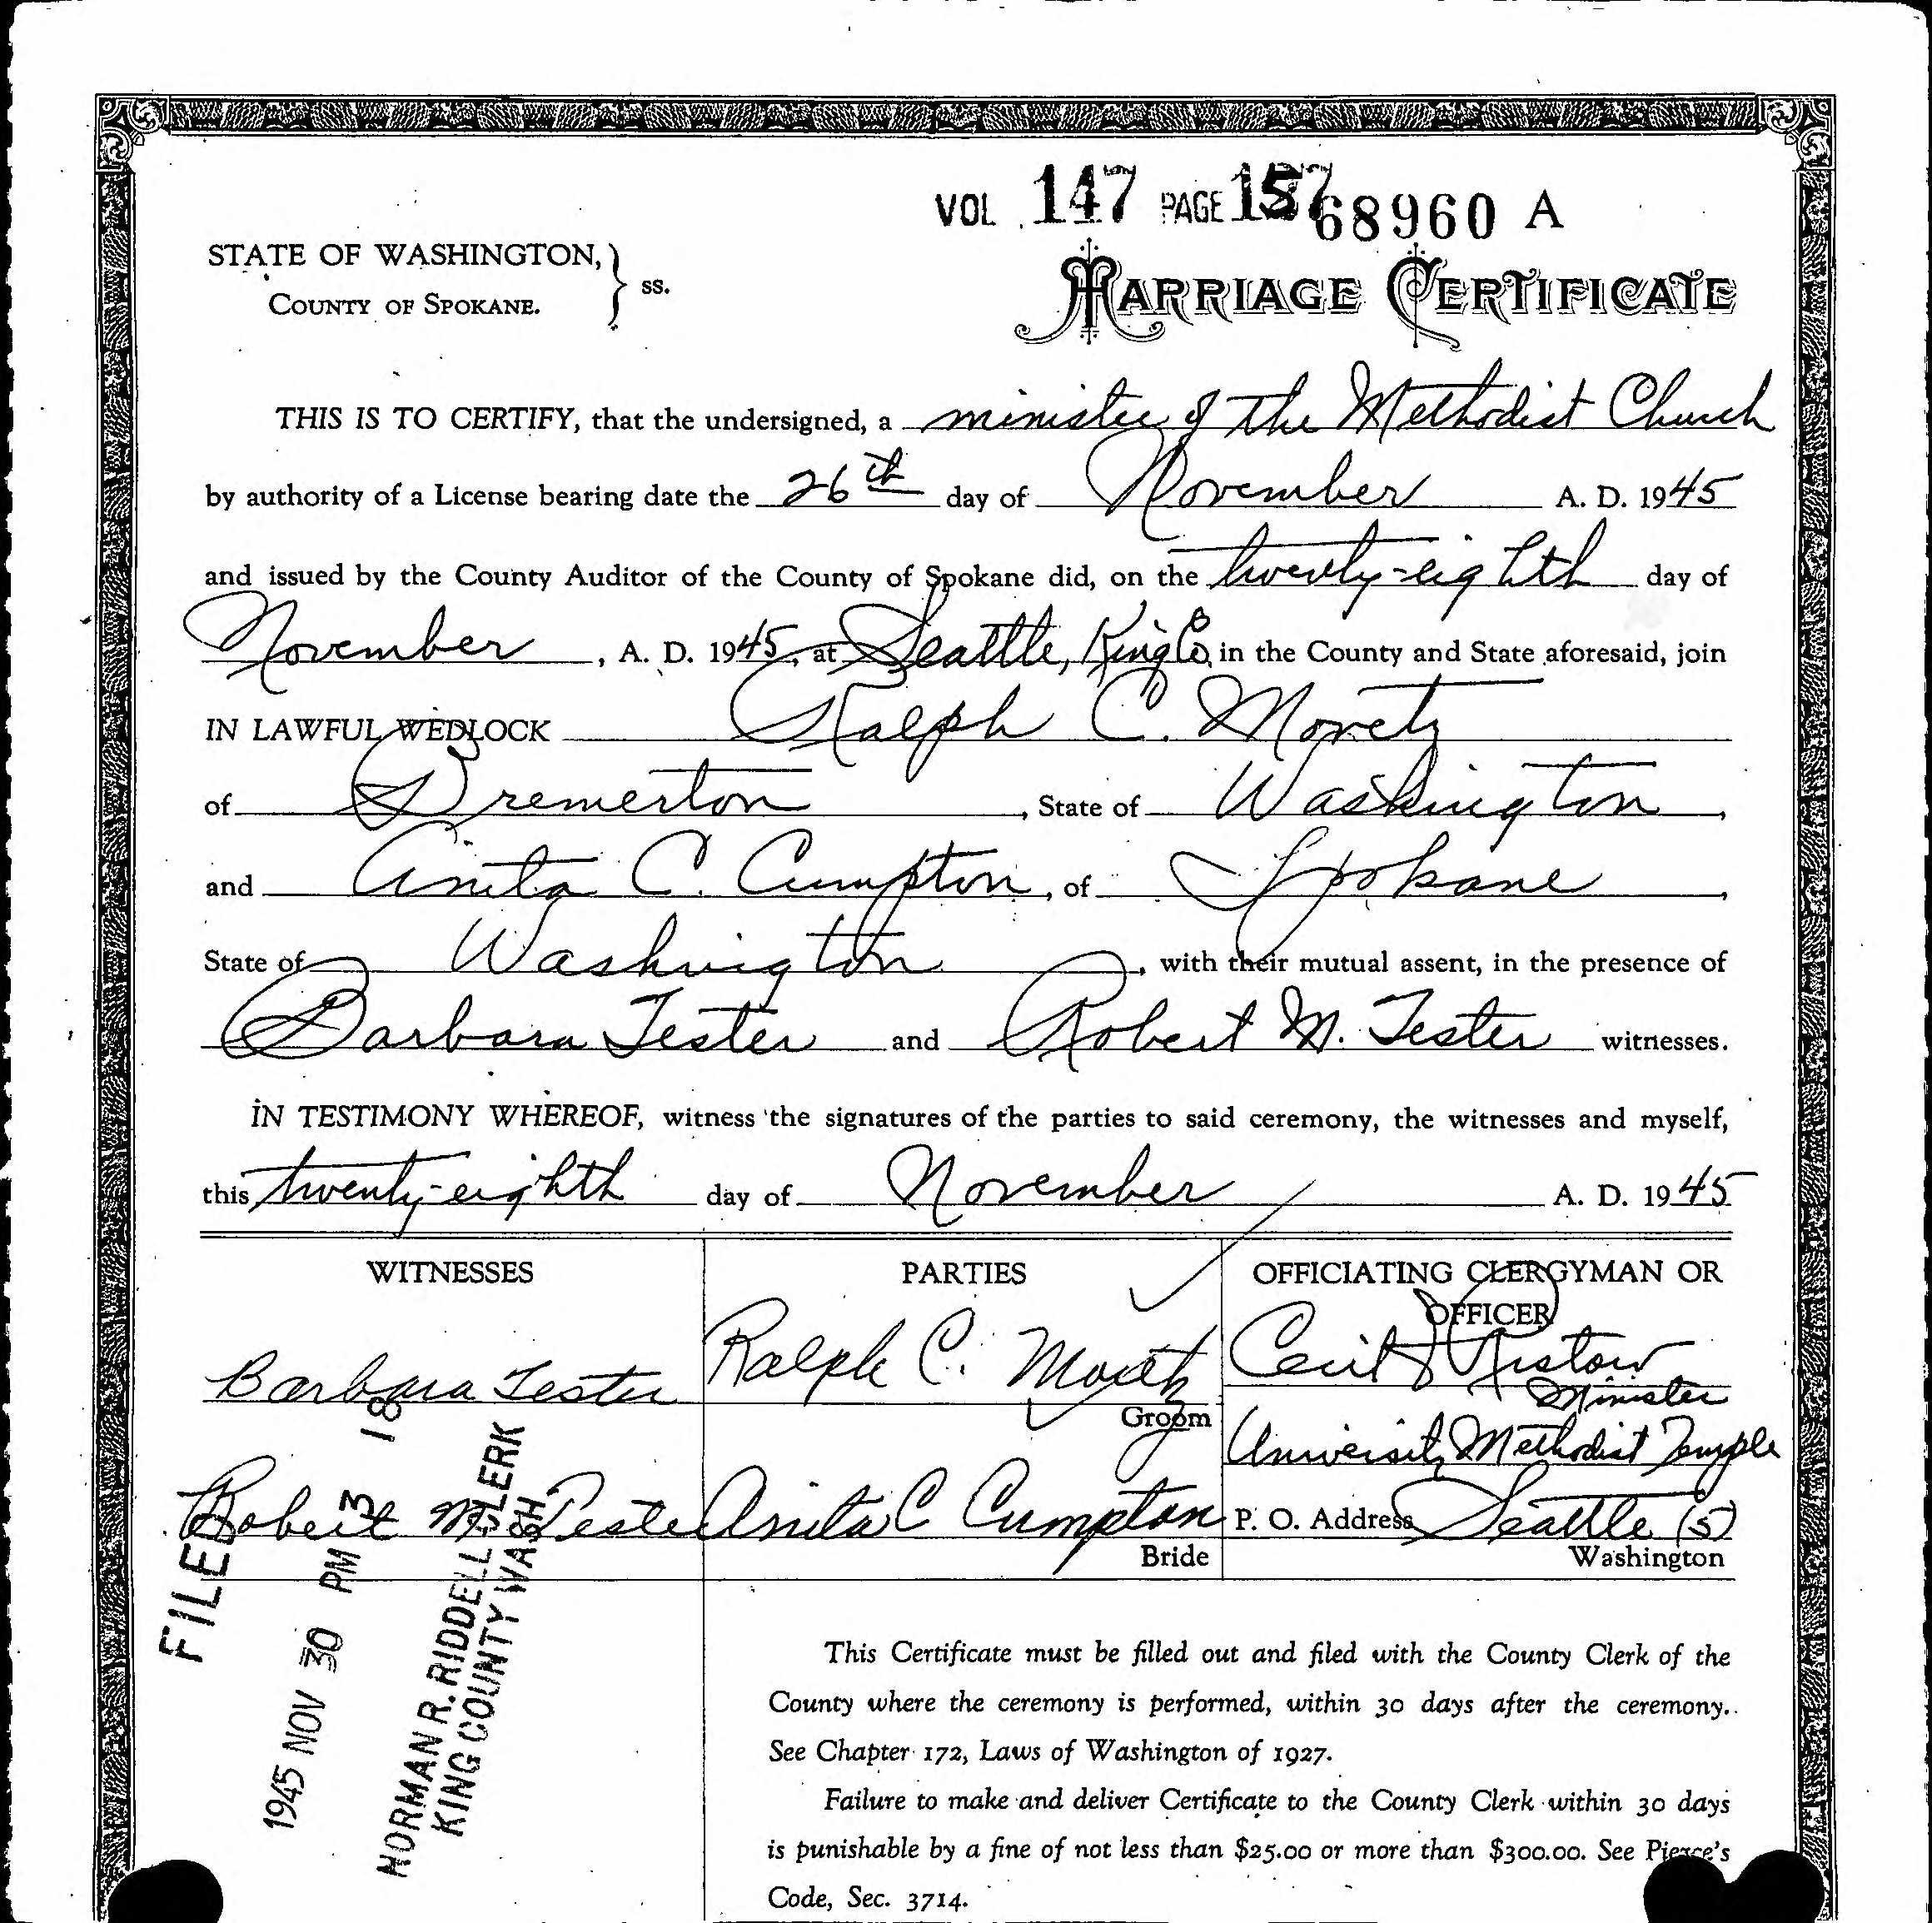 VOL. 147 PAGE 157 68960 A
STATE OF WASHINGTON, } ss.
COUNTY OF SPOKANE.
MARRIAGE CERTIFICATE
THIS IS TO CERTIFY, that the undersigned, a minister of The Methodist Church
by authority of a License bearing date the 26th day of November A. D. 1945
and issued by the County Auditor of the County of Spokane did, on the twenty-eighth day of
November, A. D. 1945, at Seattle, King Co. in the County and State aforesaid, join
IN LAWFUL WEDLOCK Ralph C. Moretz
of Bremerton, State of Washington,
and Anita C. Cumpton, of Spokane,
State of Washington, with their mutual assent, in the presence of
Barbara Tester and Robert M. Tester witnesses.
IN TESTIMONY WHEREOF, witness the signatures of the parties to said ceremony, the witnesses and myself,
this twenty-eighth day of November A. D. 1945
WITNESSES
Barbara Tester
Robert M. Tester
PARTIES
Ralph C. Moretz
Groom
Anita C Cumpton
Bride
OFFICIATING CLERGYMAN OR
OFFICER
Cecil Ristow
Minister
University Methodist Temple
P. O. Address Seattle (5)
Washington
FILED
1945 NOV 30 PM 3 18
NORMAN R. RIDDELL CLERK
KING COUNTY WASH.
This Certificate must be filled out and filed with the County Clerk of the
County where the ceremony is performed, within 30 days after the ceremony.
See Chapter 172, Laws of Washington of 1927.
Failure to make and deliver Certificate to the County Clerk within 30 days
is punishable by a fine of not less than $25.00 or more than $300.00. See Pierce's
Code, Sec. 3714.